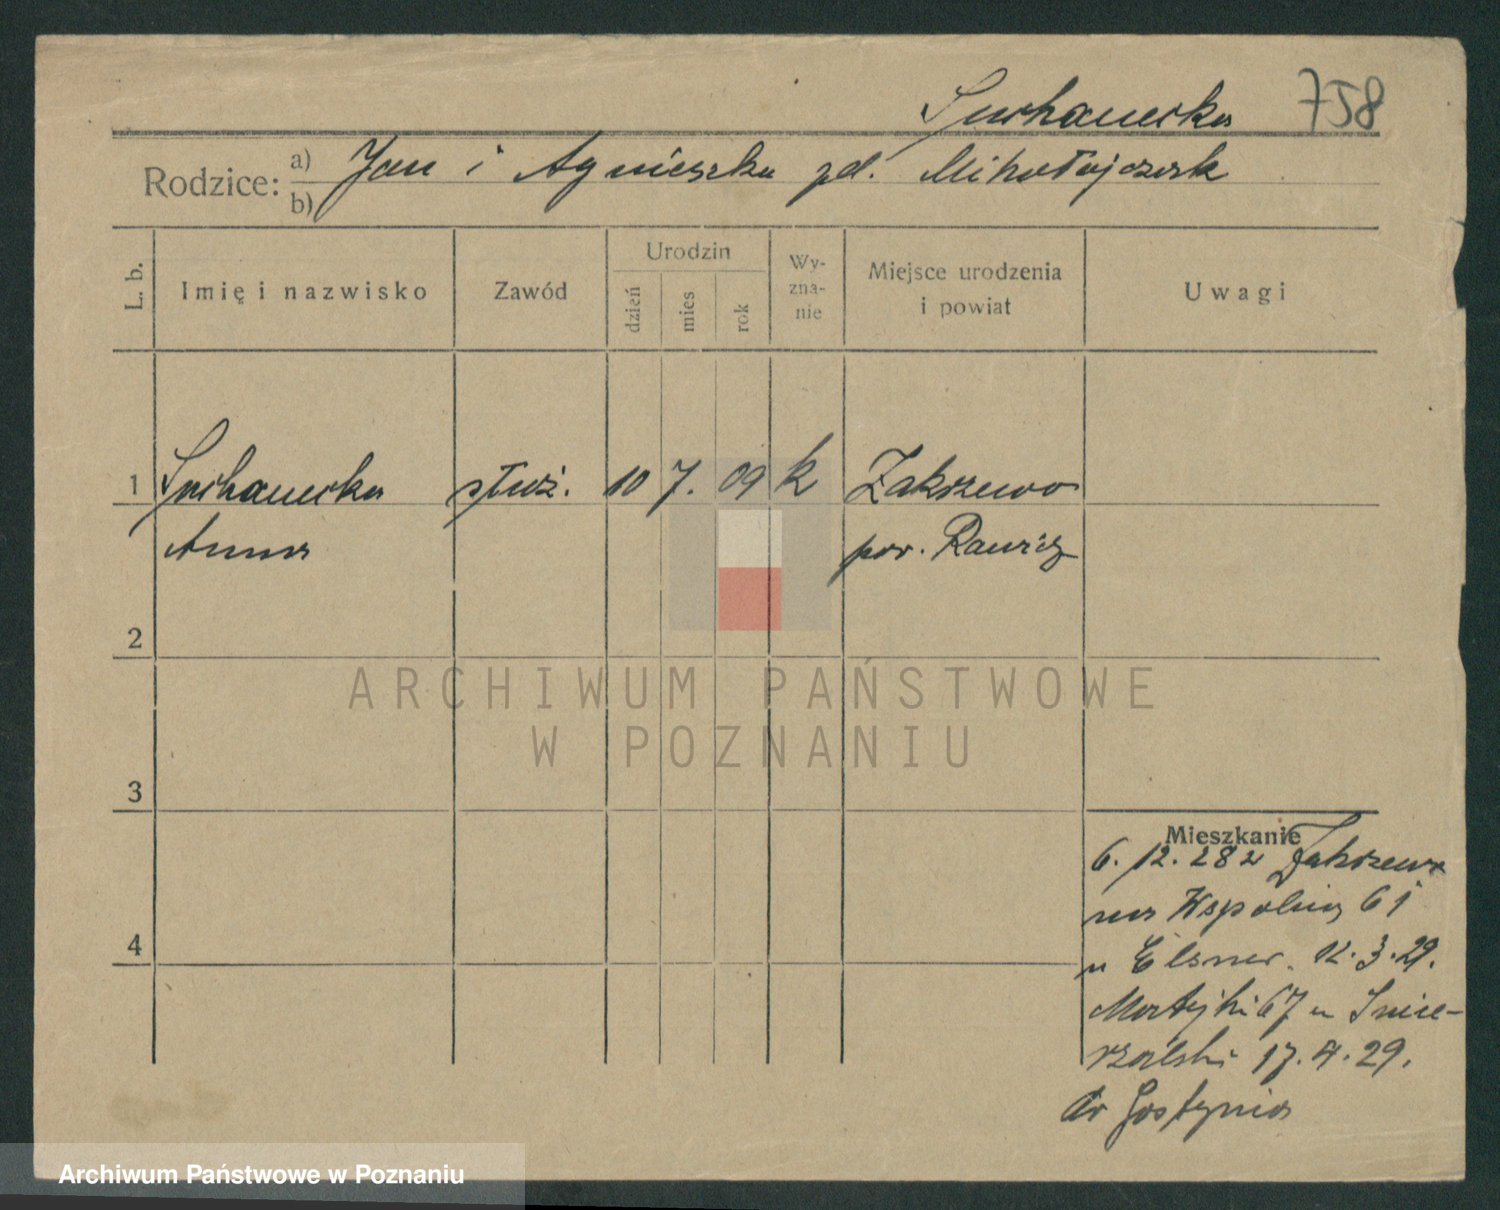 Suchanecka 758
Rodzice: a) Jan i Agnieszka zd. Mikołajczak
b)
L. b. Imię i nazwisko Zawód Urodzin dzień mies rok Wy-zna-nie Miejsce urodzenia i powiat Uwagi
1 Suchanecka służ. 10 7. 09 k Zakrzewo
Anna pow. Rawicz
2
ARCHIWUM PAŃSTWOWE
W POZNANIU
3
Mieszkanie
6. 12. 28 z Zakrzewa
na Wspólną 61
4
u Elsner. 12. 3. 29.
67 u
17. 4. 29.
do Gostynia
Archiwum Państwowe w Poznaniu